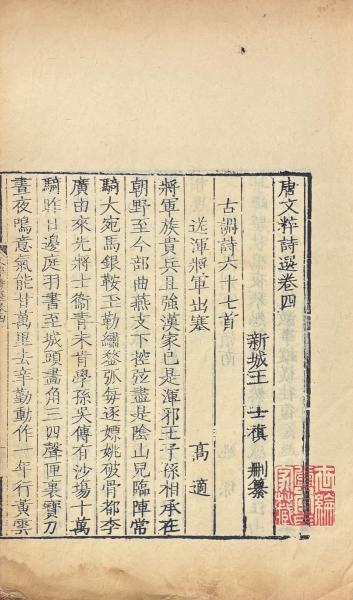 唐文粹詩選卷四
新城王士禛刪纂
古調詩六十七首
送渾將軍出塞 高適
將軍族貴兵且強漢家已是渾邪王子孫相承在
朝野至今部曲燕支下控弦盡是陰山兒臨陣常
騎大宛馬銀鞍玉勒繡蝥弧每逐嫖姚破骨都李
廣由來先將士衛青未肯學孫吳傳有沙場十萬
騎昨日邊庭羽書至城頭畫角三四聲匣裏寶刀
晝夜鳴意氣能甘萬里去辛勤動作一年行黃雲